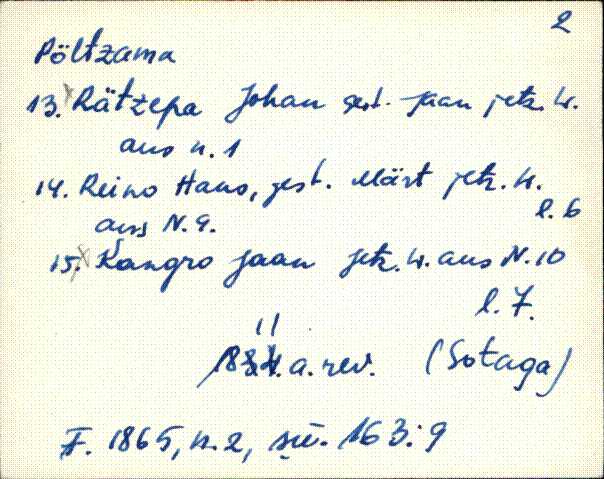 2
Pöltzama
13. Rätzepa Johan gest. Jaan jetz. W.
aus n. 1
14. Reino Hans, gest. Märt jetz. W.
aus N. 9.
l. 6
15. Kangro Jaan jetz. W. aus N. 10
l. 7.
11
a. rev. (Sotaga)
F. 1865, n. 2, sü. 163:9